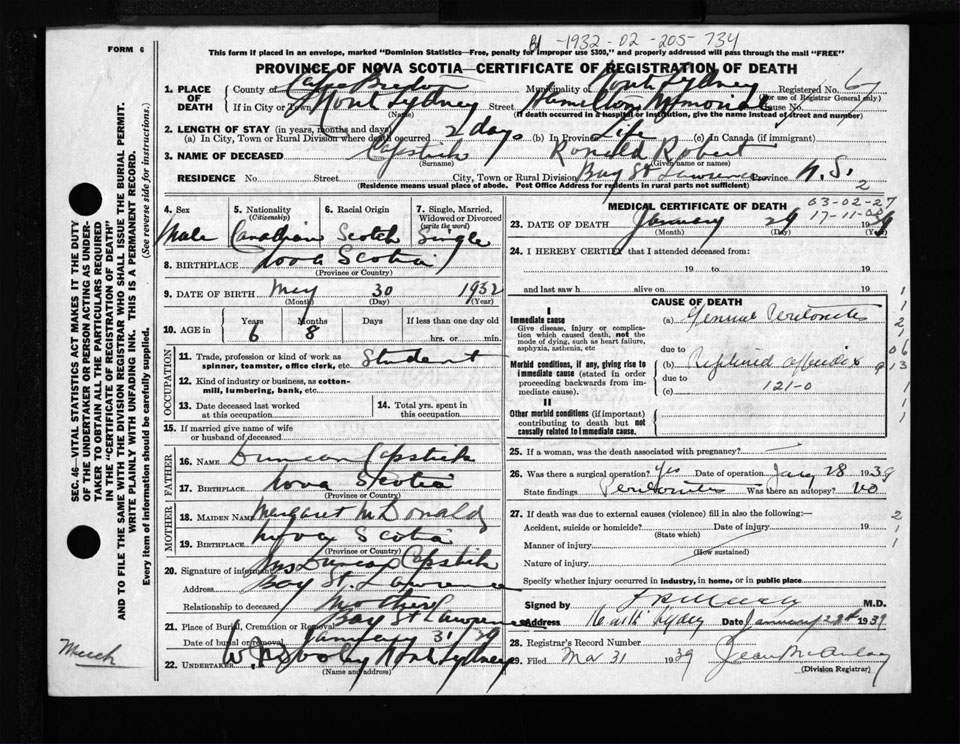 BI -1932-02-205-734
FORM 6
This form if placed in an envelope, marked "Dominion Statistics—Free, penalty for improper use $300," and properly addressed will pass through the mail "FREE"
PROVINCE OF NOVA SCOTIA—CERTIFICATE OF REGISTRATION OF DEATH
1. PLACE OF DEATH County of Cape Breton Municipality of North Sydney Registered No. 6
(For use of Registrar General only)
If in City or Town North Sydney Street Hamilton Memorial House No.
(Name) (If death occurred in a hospital or institution, give the name instead of street and number)
2. LENGTH OF STAY (in years, months and days)
(a) In City, Town or Rural Division where death occurred 2 days (b) In Province Life (c) In Canada (if immigrant)
3. NAME OF DECEASED Capstick Ronald Robert
(Surname) (Given name or names)
RESIDENCE No. Street City, Town or Rural Division Bay St Lawrence Province N.S.
(Residence means usual place of abode. Post Office Address for residents in rural parts not sufficient) 2
4. Sex 5. Nationality (Citizenship) 6. Racial Origin 7. Single, Married, Widowed or Divorced (write the word)
Male Canadian Scotch Single
8. BIRTHPLACE Nova Scotia
(Province or Country)
9. DATE OF BIRTH May 30 1932
(Month) (Day) (Year)
10. AGE in Years Months Days If less than one day old
6 8 hrs. or min.
OCCUPATION
11. Trade, profession or kind of work as spinner, teamster, office clerk, etc. Student
12. Kind of industry or business, as cotton-mill, lumbering, bank, etc.
13. Date deceased last worked at this occupation
14. Total yrs. spent in this occupation
15. If married give name of wife or husband of deceased
FATHER
16. NAME Duncan Capstick
17. BIRTHPLACE Nova Scotia
(Province or Country)
MOTHER
18. MAIDEN NAME Margaret McDonald
19. BIRTHPLACE Nova Scotia
(Province or Country)
20. Signature of informant Mrs Duncan Capstick
Address Bay St. Lawrence
Relationship to deceased Mother
21. Place of Burial, Cremation or Removal Bay St Lawrence
Date of burial or removal January 31/39
22. UNDERTAKER W. Dooley North Sydney
(Name and address)
MEDICAL CERTIFICATE OF DEATH 03-02-27
17-11-00
23. DATE OF DEATH January 29 1939
(Month) (Day) (Year)
24. I HEREBY CERTIFY that I attended deceased from:
19 to 19
and last saw h alive on 19
CAUSE OF DEATH
I
Immediate cause
Give disease, injury or complication which caused death, not the mode of dying, such as heart failure, asphyxia, asthenia, etc
(a) General Peritonitis
due to
Morbid conditions, if any, giving rise to immediate cause (stated in order proceeding backwards from immediate cause).
(b) Ruptured appendix
due to 121-0
(c)
II
Other morbid conditions (if important) contributing to death but not causally related to immediate cause.
25. If a woman, was the death associated with pregnancy?
26. Was there a surgical operation? Yes Date of operation Jany 28 1939
State findings Peritonitis Was there an autopsy? No
27. If death was due to external causes (violence) fill in also the following:—
Accident, suicide or homicide? Date of injury 19
(State which)
Manner of injury
(How sustained)
Nature of injury
Specify whether injury occurred in industry, in home, or in public place
Signed by M.D.
Address North Sydney Date January 1939
28. Registrar's Record Number
29. Filed Mar 31 1939 Jean McAulay
(Division Registrar)
SEC. 46—VITAL STATISTICS ACT MAKES IT THE DUTY
OF THE UNDERTAKER OR PERSON ACTING AS UNDER-
TAKER TO OBTAIN ALL THE PARTICULARS REQUIRED
IN THE "CERTIFICATE OF REGISTRATION OF DEATH"
AND TO FILE THE SAME WITH THE DIVISION REGISTRAR WHO SHALL ISSUE THE BURIAL PERMIT.
WRITE PLAINLY WITH UNFADING INK. THIS IS A PERMANENT RECORD.
Every item of information should be carefully supplied. (See reverse side for instructions.)
1
1
2
1
06
9 13
1
1
1
2
1
1